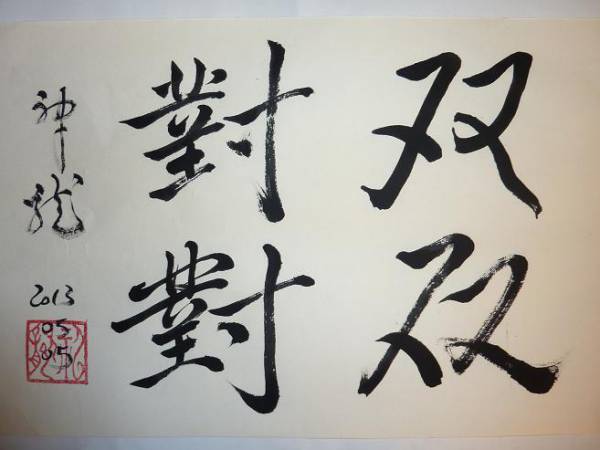 双双
對對
神龙
2013
05
05